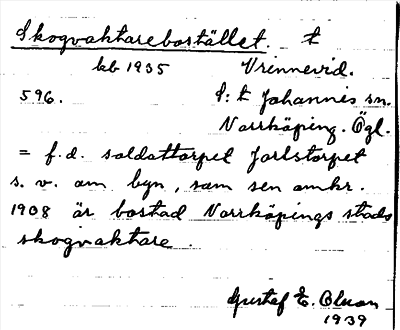 Skogvaktarebostället. t
kb 1935 Vrinnevid.
596. S:t Johannis sn.
Norrköping. Ögl.
= f.d. soldattorpet Jorlstorpet
s.v. om byn, som sen omkr.
1908 är bostad Norrköpings stads
skogvaktare.
Gustaf E. Olsson
1939